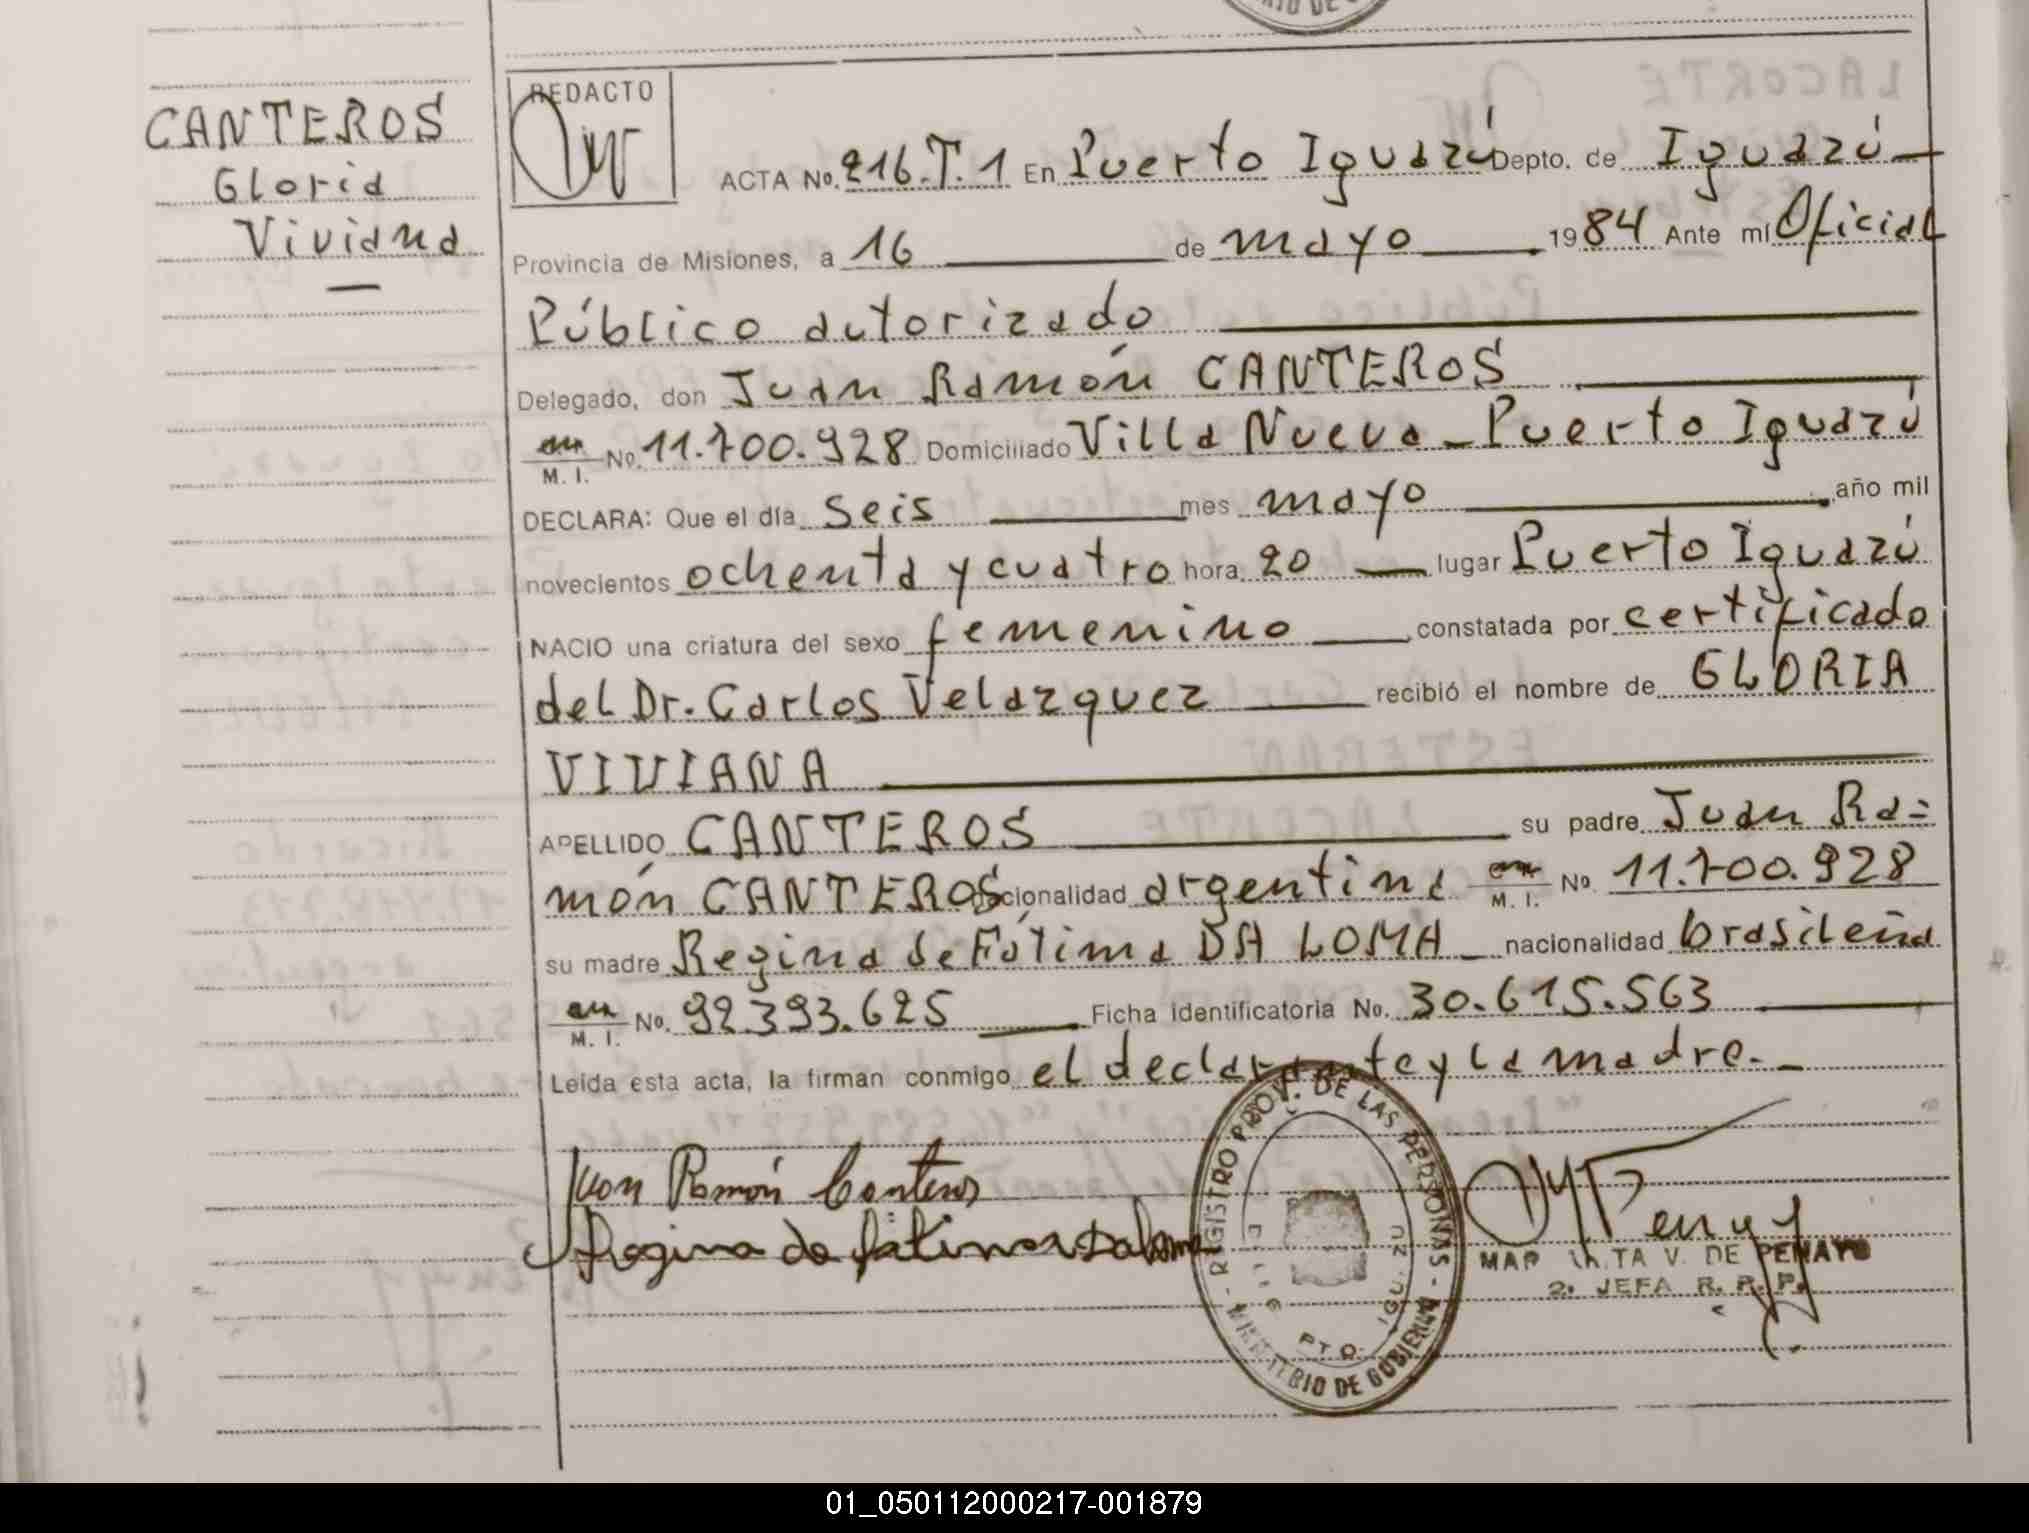 RIO DE
CANTEROS
Gloria
Viviana
REDACTO
ACTA No. 216.T.1 En Puerto Iguazú Depto. de Iguazú
Provincia de Misiones, a 16 de mayo 1984 Ante mí Oficial
Público autorizado
Delegado, don Juan Ramón CANTEROS
M. I. No. 11.700.928 Domiciliado Villa Nueva - Puerto Iguazú
DECLARA: Que el día seis mes mayo año mil
novecientos ochenta y cuatro hora 20 lugar Puerto Iguazú
NACIO una criatura del sexo femenino constatada por certificado
del Dr. Carlos Velazquez recibió el nombre de GLORIA
VIVIANA
APELLIDO CANTEROS su padre Juan Ra=
món CANTEROS cionalidad argentina M. I. No 11.700.928
su madre Regina de Fátima DA LOMA nacionalidad brasileña
M. I. No. 92.393.625 Ficha identificatoria No. 30.615.563
Leída esta acta, la firman conmigo el declarante y la madre.
Juan Ramón Canteros
Regina de Fátima Daloma
REGISTRO PROV. DE LAS PERSONAS - MINISTERIO DE GOBIERNO
PTO. IGUAZU
TA V. DE PENAYO
2. JEFA R. P. P.
01_050112000217-001879